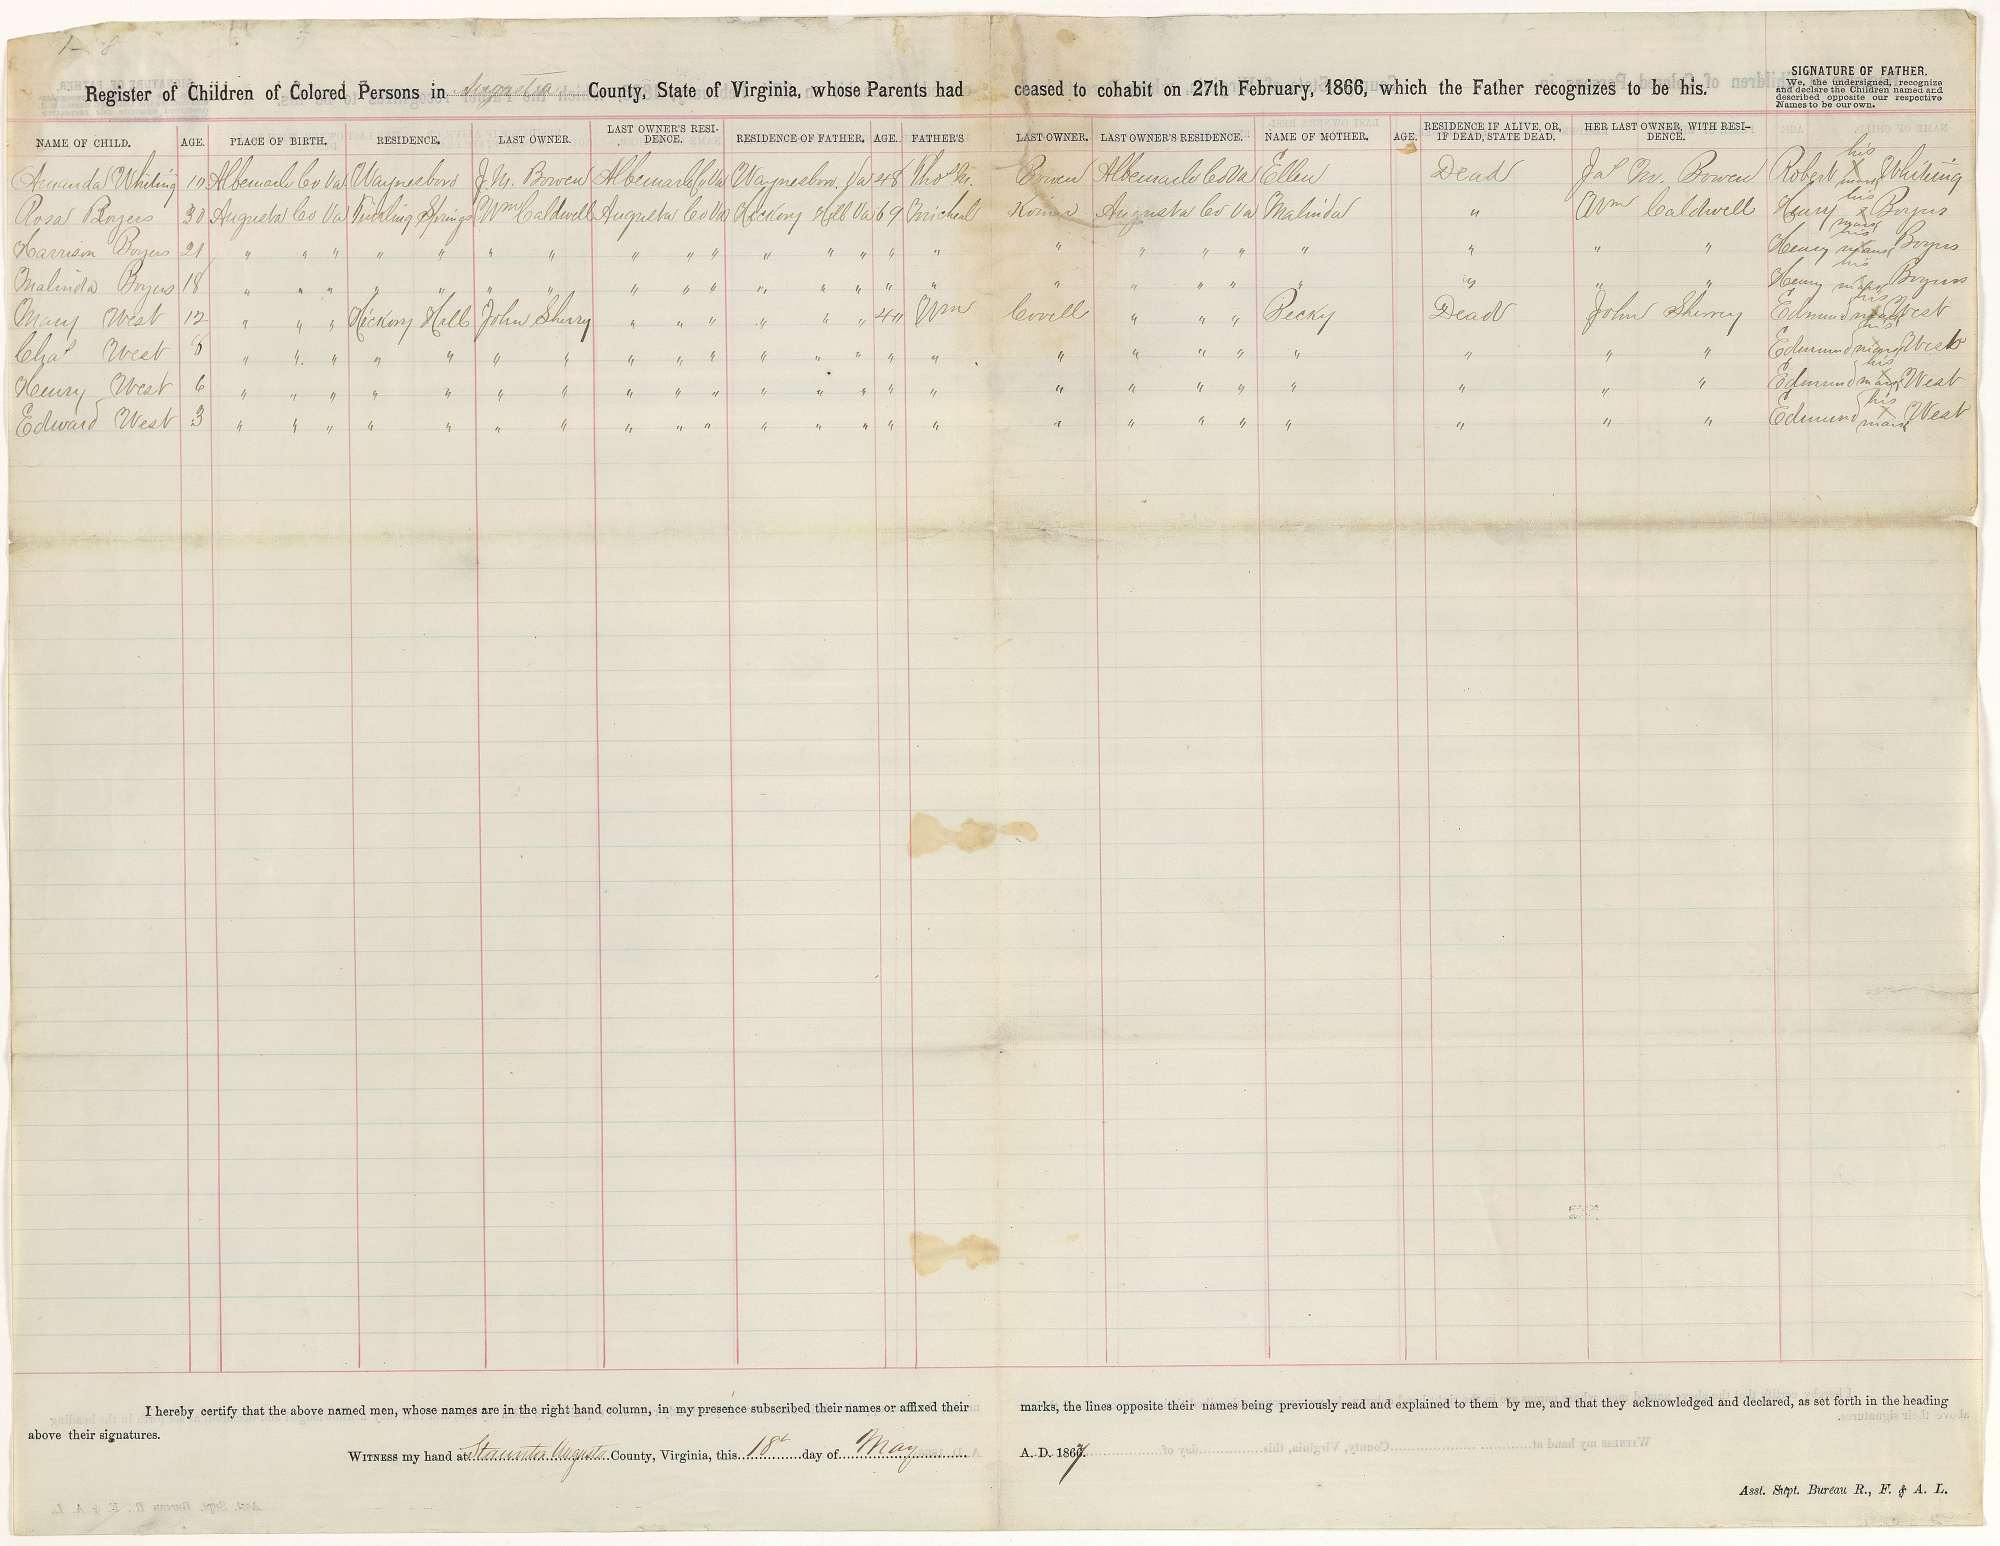 1 - 8
Register of Children of Colored Persons in Augusta County, State of Virginia, whose Parents had ceased to cohabit on 27th February, 1866, which the Father recognizes to be his.
SIGNATURE OF FATHER.
We, the undersigned, recognize
and declare the Children named and
described opposite our respective
Names to be our own.
NAME OF CHILD. AGE. PLACE OF BIRTH. RESIDENCE. LAST OWNER. LAST OWNER'S RESIDENCE. RESIDENCE OF FATHER. AGE. FATHER'S LAST OWNER. LAST OWNER'S RESIDENCE. NAME OF MOTHER. AGE. RESIDENCE IF ALIVE, OR, IF DEAD, STATE DEAD. HER LAST OWNER, WITH RESIDENCE.
Amanda Whiting 10 Albemarle Co Va Waynesboro J. M. Bowen Albemarle Co Va Waynesboro Va 48 Thos M. Bowen Albemarle Co Va Ellen Dead Jas M. Bowen Robert his x mark Whiting
Rosa Boyers 30 Augusta Co Va Tinkling Springs Wm Caldwell Augusta Co Va Hickory Hill Va 69 Michael Koiner Augusta Co Va Malinda " Wm Caldwell Henry his x mark Boyers
Harrison Boyers 21 " " " " " " " " " " " " " " " " " " " " " " " Henry his x mark Boyers
Malinda Boyers 18 " " " " " " " " " " " " " " " " " " " " " " " Henry his x mark Boyers
Mary West 12 " " " Hickory Hill John Sherry " " " " " " 40 Wm Covell " " " Becky Dead John Sherrey Edmund his x mark West
Chas West 8 " " " " " " " " " " " " " " " " " " " " " " " Edmund his x mark West
Henry West 6 " " " " " " " " " " " " " " " " " " " " " " " Edmund his x mark West
Edward West 3 " " " " " " " " " " " " " " " " " " " " " " " Edmund his x mark West
I hereby certify that the above named men, whose names are in the right hand column, in my presence subscribed their names or affixed their marks, the lines opposite their names being previously read and explained to them by me, and that they acknowledged and declared, as set forth in the heading
above their signatures.
WITNESS my hand at Staunton Augusta County, Virginia, this 18th day of May A. D. 1867
Asst. Supt. Bureau R., F. & A. L.